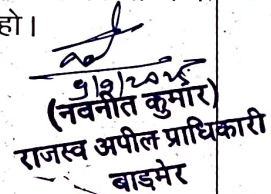 हो।
(नवनीत कुमार)
राजस्व अपील प्राधिकारी
बाड़मेर